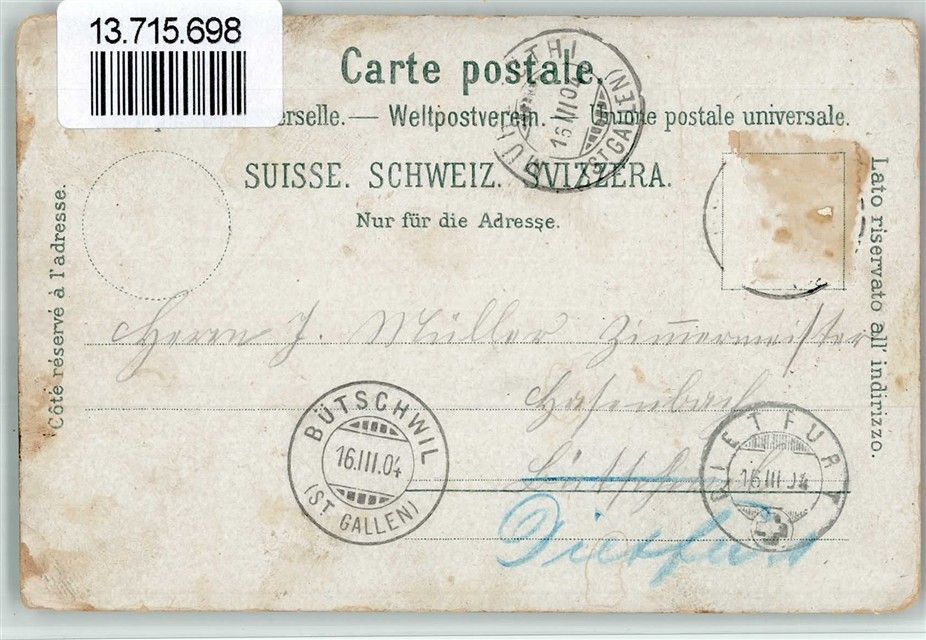 13.715.698
Carte postale.
erselle. — Weltpostverein. — Unione postale universale.
SUISSE. SCHWEIZ. SVIZZERA.
Nur für die Adresse.
Côté réservé à l'adresse.
Lato riservato all' indirizzo.
16 III 04
(ST GALLEN)
Herrn J. Müller Zim̅ermeister
Hasenbach
BÜTSCHWIL
16.III.04
(ST. GALLEN)
DIETFURT
16 III 04
Dietfurt